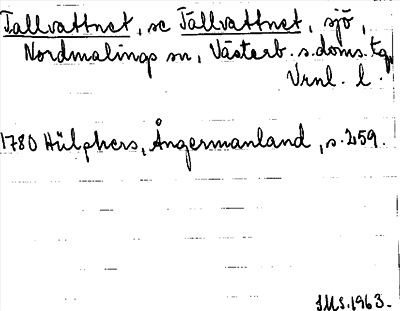 Tallvattnet, se Tällvattnet, sjö,
Nordmalings sn, Västerb. s. doms. tg,
Vrnl. l.
1780 Hülphers, Ångermanland, s. 259.
IMS. 1963.